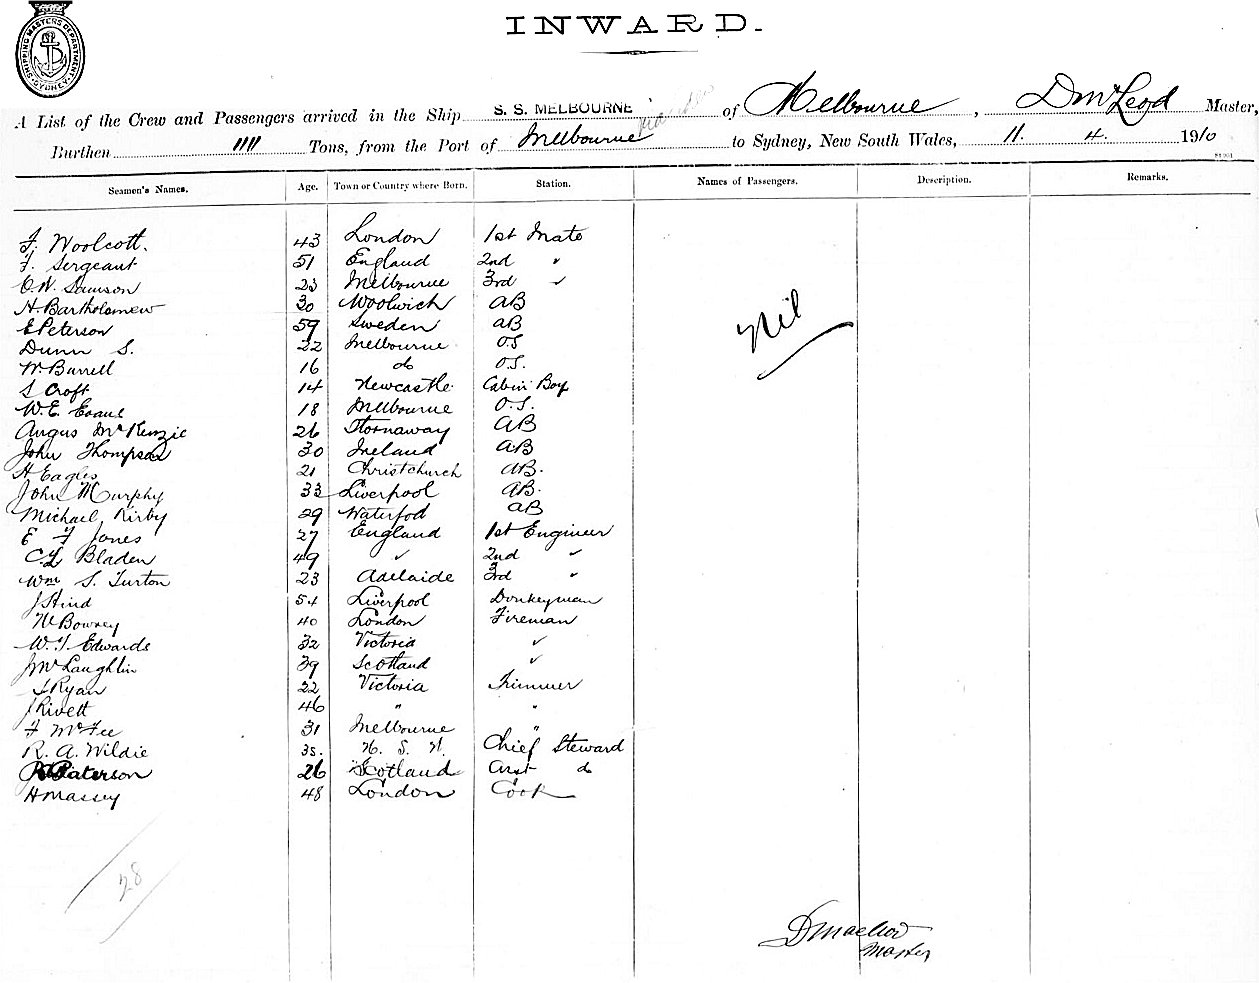 SHIPPING MASTERS DEPARTMENT. SYDNEY
INWARD.
A List of the Crew and Passengers arrived in the Ship S. S. MELBOURNE of Melbourne, D McLeod Master,
Burthen 1111 Tons, from the Port of Melbourne to Sydney, New South Wales, 11. 4. 1910
Seamen's Names. Age. Town or Country where Born. Station. Names of Passengers. Description. Remarks.
F. Woolcott. 43 London 1st Mate
F. Sergeant 51 England 2nd "
O.W. Samson 23 Melbourne 3rd "
H. Bartholomew 30 Woolwich AB
E Peterson 59 Sweden AB
Dunn S. 22 Melbourne OS
W. Burrell 16 do O.S.
S Croft 14 Newcastle Cabin Boy
W.E. 18 Melbourne O.S.
Angus McKenzie 26 Stornaway AB
John Thompson 30 Ireland AB
H Eagles 21 Christchurch AB.
John Murphy 33 Liverpool AB.
Michael Kirby 29 Waterfod AB
E F Jones 27 England 1st Engineer
C.L Bladen 49 " 2nd "
Wm S. Turton 23 Adelaide 3rd "
J Hind 54 Liverpool Donkeyman
W Bowrey 40 London Fireman
W. J. Edwards 32 Victoria "
J McLaughlin 39 Scotland "
J Ryan 22 Victoria Trimmer
J Rivett 46 " "
F McFee 31 Melbourne "
R. A. Wildie 35. N. S. W. Chief Steward
Paterson 26 Scotland Asst do
H Massey 48 London Cook
Nil
28
D Macleod
Master